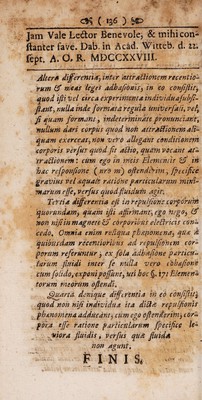 (136)
Jam Vale Lector Benevole, & mihi con-
stanter fave. Dab. in Acad. Witteb. d. 22.
sept. A. O. R. MDCCXXVIII.
Altera differentia, inter attractionem recentio-
rum & meas leges adhæsionis, in eo consistit,
quod isti vel circa experimenta individua subsi-
stant, nulla inde formata regula universali, vel,
si quam formant, indeterminate pronuncient,
nullum dari corpus quod non attractionem ali-
quam exerceat, non vero allegant conditionem
corporis versus quod fit actio, quam vocant at-
tractionem: cum ego in meis Elementis & in
hac responsione ostenderim, specifice
gravius vel æquale ratione particularum mini-
marum esse, versus quod fluidum agit.
Tertia differentia est in repulsione corporum
quorundam, quam isti affirmant, ego nego, &
non nisi in magnete & corporibus electricis con-
cedo, Omnia enim reliqua phænomena, quæ a
quibusdam recentioribus ad repulsionem cor-
porum referuntur, ex sola adhæsione particu-
larum fluidi inter se nulla vero adhæsione
cum solido, exponi possunt, uti hoc §. 171 Elemen-
torum meorum ostendi.
Quarta denique differentia in eo consistit,
quod non nisi individua ista dictæ repulsionis
phænomena adducant, cum ego ostenderim, cor-
pora esse ratione particularum specifice le-
viora fluidis, versus quæ fluida
non agunt.
FINIS.